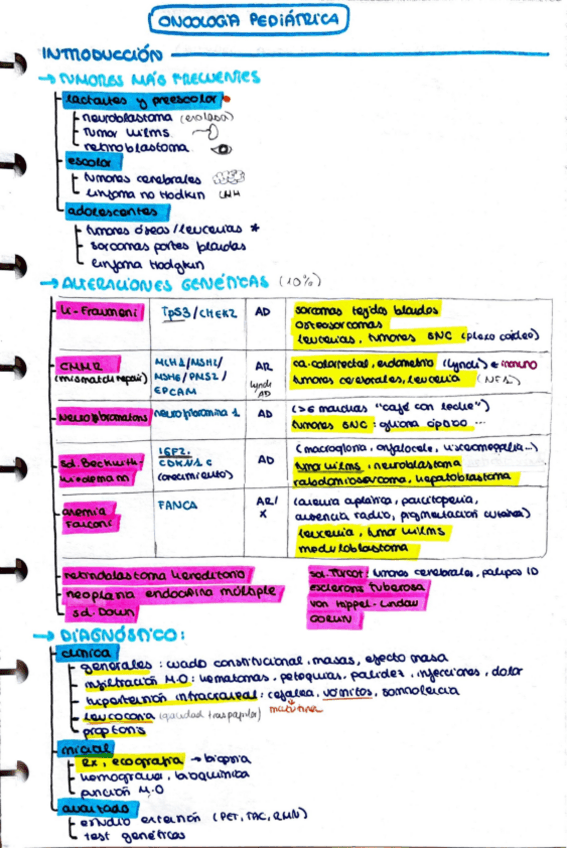 ONCOLOGÍA PEDIÁTRICA
INTRODUCCIÓN
→ TUMORES MÁS FRECUENTES
lactantes y preescolar
neuroblastoma
tumor Wilms
retinoblastoma
escolar
tumores cerebrales
linfoma no Hodkin LNH
adolescentes
tumores óseos/leucemias *
sarcomas partes blandas
linfoma Hodgkin
→ ALTERACIONES GENÉTICAS (10%)
Li-Fraumeni TP53/CHEK2 AD sarcomas tejidos blandos
osteosarcomas
leucemias, tumores SNC (plexo coideo)
CMMR MLH1/MSH2/ AR ca. colorrectal, endometrio (Lynch) + inmuno
(mismatch repair) MSH6/PMS2/ Lynch tumores cerebrales, leucemia (NF1)
EPCAM AD
Neurofibromatosis neurofibromina 1 AD (>6 manchas "café con leche")
tumores SNC: glioma óptico ...
sd. Beckwith- IGF2, AD (macroglosia, onfalocele, visceromegalia...)
Wiedemann CDKN1C tumor wilms, neuroblastoma
(crecimiento) rabdomiosarcoma, hepatoblastoma
anemia FANCA AR/ (anemia aplásica, pancitopenia,
Fanconi X ausencia radio, pigmentación cutánea)
leucemia, tumor wilms
meduloblastoma
retinoblastoma hereditario sd. Turcot: tumores cerebrales, pólipos ID
neoplasia endocrina múltiple esclerosis tuberosa
sd. Down von Hippel-Lindau
GORLIN
→ DIAGNÓSTICO:
clínica
generales: cuadro constitucional, masas, efecto masa
infiltración M.O: hematomas, petequias, palidez, infecciones, dolor
hipertensión intracraneal: cefalea, vómitos, somnolencia
matutina
leucocoria (opacidad traspupilar)
proptosis
inicial
RX, ecografía → biopsia
hemograma, bioquímica
punción M.O
avanzado
estudio extensión (PET, TAC, RMN)
test genéticos